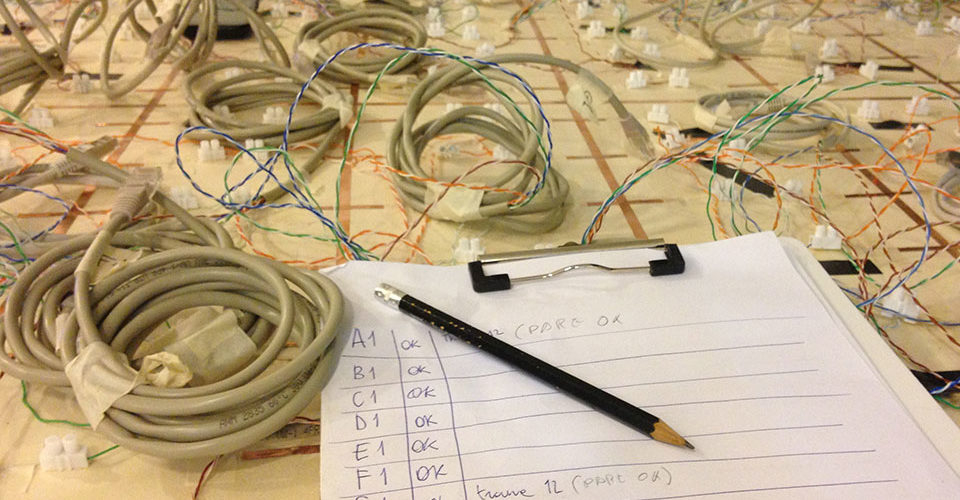 A1 OK 12 (PARE OK
B1 OK
C1 OK
D1 OK
E1 OK
F1 OK
OK trave 12 (PARE OK)